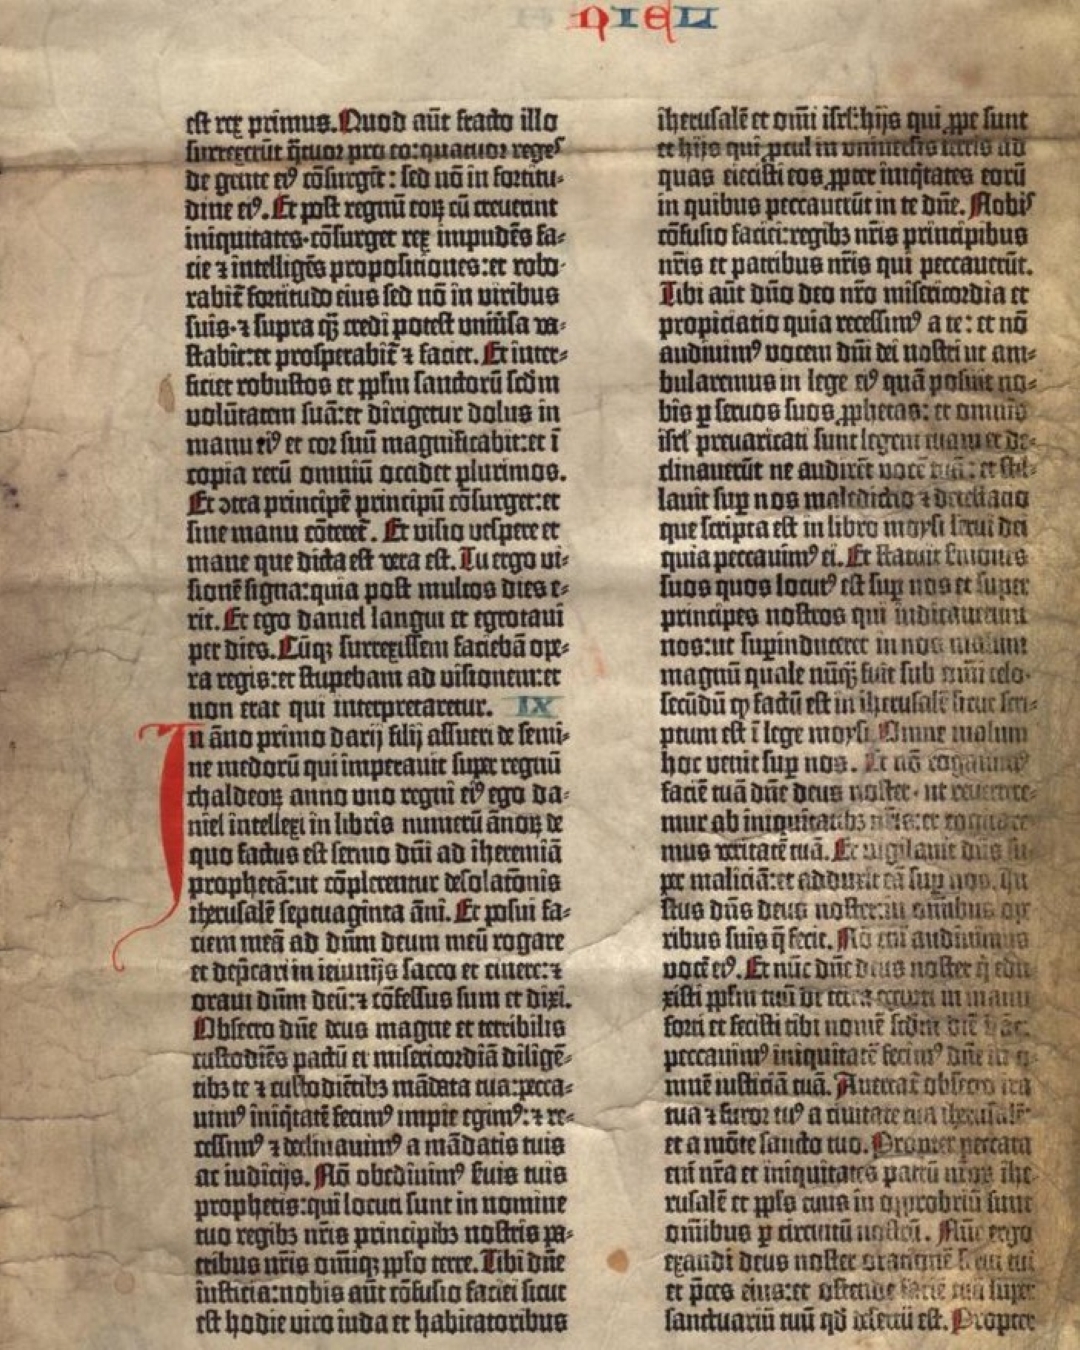 NIELI
est rex primus. Quod aūt fracto illo
surrexerūt q̄tuor pro eo: quatuor reges
de gente eiꝰ cōsurgēt: sed nō in fortitu-
dine eiꝰ. Et post regnū eoꝝ cū creuerint
iniquitates· cōsurget rex impudēs fa-
cie ⁊ intelligēs propositiones: et robo-
rabit̄ fortitudo eius sed nō in viribus
suis· ⁊ supra q̄ꝫ credi potest vniūsa va-
stabit: et prosperabit̄ ⁊ faciet. Et inter-
ficiet robustos et pp̄lm sanctorū scd̄m
volūtatem suā: et dirigetur dolus in
manu eiꝰ et cor suū magnificabit: et ī
copia rerū omniū occidet plurimos.
Et ꝯtra principē principū cōsurget: et
sine manu cōteret̄. Et visio vespere et
mane que dicta est vera est. Tu ergo vi-
sionē signa: quia post multos dies e-
rit. Et ego daniel langui et egrotaui
per dies. Cūqꝫ surrexissem faciebā ope-
ra regis: et stupebam ad visionem: et
non erat qui interpretaretur. IX
In āno primo darij filij assueri de semi-
ne medorū qui imperauit super regnū
chaldeoꝝ anno vno regni eiꝰ ego da-
niel intellexi in libris numerū ānoꝝ de
quo factus est sermo dn̄i ad iheremiā
prophetā: ut cōplerentur desolatōnis
iherusalē septuaginta āni. Et posui fa-
ciem meā ad dn̄m deum meū rogare
et dep̄cari in ieiunijs sacco et cinere: ⁊
oraui dn̄m deū: ⁊ cōfessus sum et dixi.
Obsecro dn̄e deus magne et terribilis
custodiēs pactū et misericordiā diligē-
tibꝫ te ⁊ custodiētibꝫ mādata tua: pecca-
uimꝰ iniq̇tatē fecimꝰ impie egimꝰ: ⁊ re-
cessimꝰ ⁊ declinauimꝰ a mādatis tuis
ac iudicijs. Nō obediuimꝰ ſuis tuis
prophetis: qui locuti sunt in nomine
tuo regibꝫ nr̄is principibꝫ nostris pa-
tribus nr̄is om̄iqꝫ pp̄lo terre. Tibi dn̄e
iusticia: nobis aūt cōfusio faciei sicut
est hodie viro iuda et habitatoribus
iherusalē et om̄i isrl̄: hijs qui ꝓpe sunt
et hijs qui ꝓcul in vniuersis terris ad
quas eiecisti eos ꝓpter iniq̇tates eorū
in quibus peccauerūt in te dn̄e. Nobis
cōfusio faciei: regibꝫ nr̄is principibus
nr̄is et patribus nr̄is qui peccauerūt.
Tibi aūt dn̄o deo nr̄o misericordia et
propiciatio quia recessimꝰ a te: et nō
audiuimꝰ vocem dn̄i dei nostri ut am-
bularemus in lege eiꝰ quā posuit no-
bis ꝑ seruos suos ꝓphetas: et omnis
isrl̄ preuaricati sunt legem tuam et de-
clinauerūt ne audirēt vocē tuā: et stil-
lauit suꝑ nos maledictio ⁊ detestatio
que scripta est in libro moysi serui dei
quia peccauimꝰ ei. Et statuit sermones
suos quos locutꝰ est suꝑ nos et super
principes nostros qui iudicauerunt
nos: ut suꝑinduceret in nos malum
magnū quale nūq̄ꝫ fuit sub omni celo·
secūdū qꝫ factū est in iherusalē sicut scri-
ptum est ī lege moysi. Omne malum
hoc venit suꝑ nos. Et nō rogauimꝰ
faciē tuā dn̄e deus noster· ut reuertere-
mur ab iniquitatibꝫ nr̄is: et cogitare-
mus veritatē tuā. Et vigilauit dn̄s su-
per maliciā: et adduxit eā suꝑ nos. Iu
stus dn̄s deus noster: in om̄ibus ope
ribus suis q̄ fecit. Nō em̄ audiuimus
vocē eiꝰ. Et nūc dn̄e deus noster q̇ edu
xisti pp̄lm tuū de terra egypti in manu
forti et fecisti tibi nomē scd̄m diē hāc:
peccauimꝰ iniquitatē fecimꝰ dn̄e in o-
mnē iusticiā tuā. Auertat̄ obsecro ira
tua ⁊ furor tuꝰ a ciuitate tua iherusalē·
et a mōte sancto tuo. Propter peccata
em̄ nr̄a et iniquitates patrū nr̄oꝝ ihe-
rusalē et pp̄ls tuus in opprobriū sunt
om̄ibus ꝑ circuitū nostrū. Nūc ergo
exaudi deus noster orationē serui tui
et p̄ces eius: et ostende faciē tuā super
sanctuariū tuū qd̄ desertū est. Propter